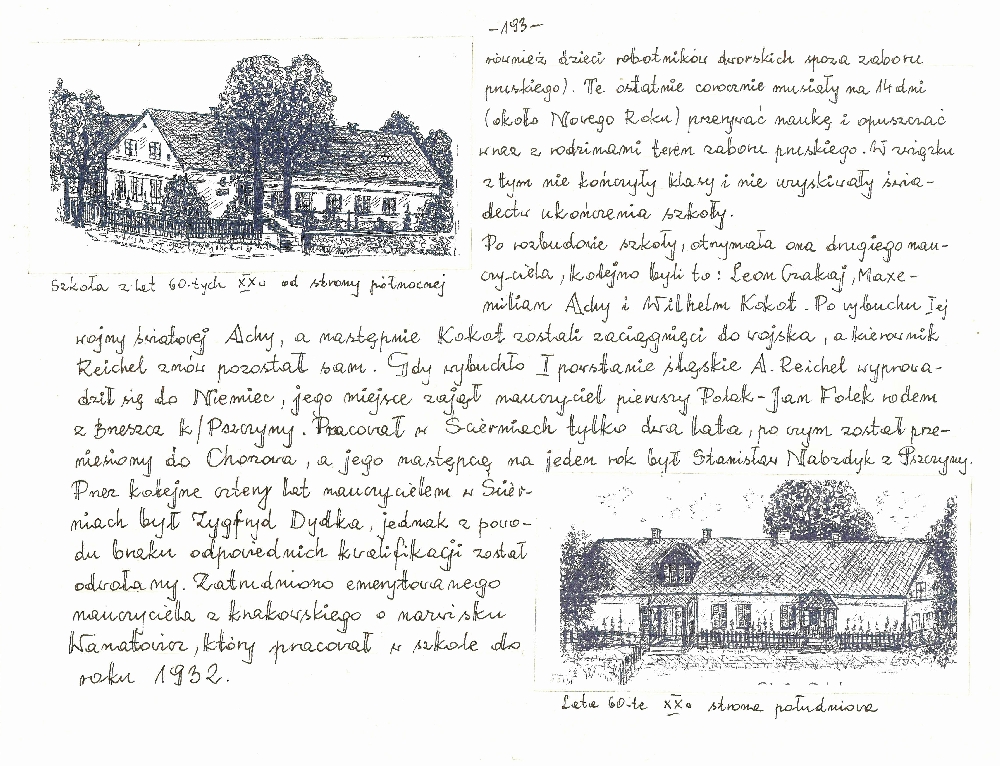 -193-
również dzieci robotników dworskich spoza zaboru
pruskiego). Te ostatnie corocznie musiały na 14 dni
(około Nowego Roku) przerywać naukę i opuszczać
wraz z rodzinami teren zaboru pruskiego. W związku
z tym nie kończyły klasy i nie uzyskiwały świa-
dectw ukończenia szkoły.
Po rozbudowie szkoły, otrzymała ona drugiego nau-
czyciela, kolejno byli to: Leon Czakaj, Maxe-
milian Achy i Wilhelm Kokot. Po wybuchu Iej
Szkoła z lat 60-tych XXw od strony północnej
wojny światowej Achy, a następnie Kokot zostali zaciągnięci do wojska, a kierownik
Reichel znów pozostał sam. Gdy wybuchło I powstanie śląskie A. Reichel wyprowa-
dził się do Niemiec, jego miejsce zajął nauczyciel pierwszy Polak - Jan Folek rodem
z Brzeszcz k/Pszczyny. Pracował w Ścierniach tylko dwa lata, po czym został prze-
niesiony do Chorzowa, a jego następcą na jeden rok był Stanisław Nabzdyk z Pszczyny.
Przez kolejne cztery lat nauczycielem w Ścier-
niach był Zygfryd Dydka, jednak z powo-
du braku odpowiednich kwalifikacji został
odwołany. Zatrudniono emerytowanego
nauczyciela z krakowskiego o nazwisku
Wanatowicz, który pracował w szkole do
roku 1932.
Lata 60-te XXw strona południowa